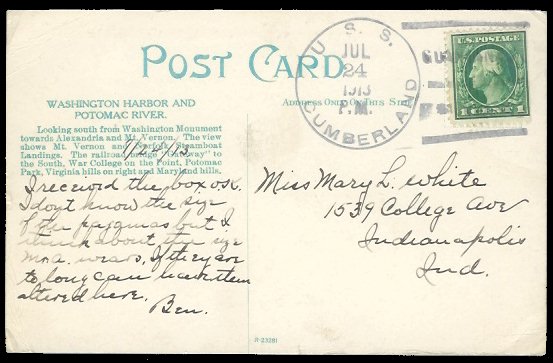 POST CARD
WASHINGTON HARBOR AND
POTOMAC RIVER.
Looking south from Washington Monument
towards Alexandria and Mt. Vernon. The view
shows Mt. Vernon and Norfolk Steamboat
Landings. The railroad bridge "Gateway" to
the South, War College on the Point, Potomac
Park, Virginia hills on right and Maryland hills.
ADDRESS ONLY ON THIS SIDE
U. S. S.
JUL
24
1913
P.M.
CUMBERLAND
U.S. POSTAGE
1 CENT 1
I received the box o.k.
I don't know the size
of the pajamas but I
think about the size
Mr. A. wears. If they are
to long can have them
altered here.
Ben.
Miss Mary L. White
1539 College Ave
Indianapolis
Ind.
R-23281